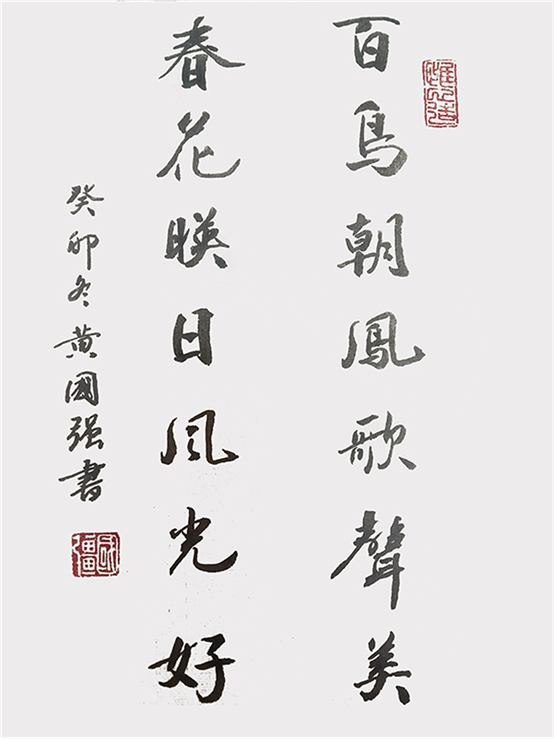 百鳥朝鳳歌聲美
春花暎日风光好
癸卯冬黄國强書